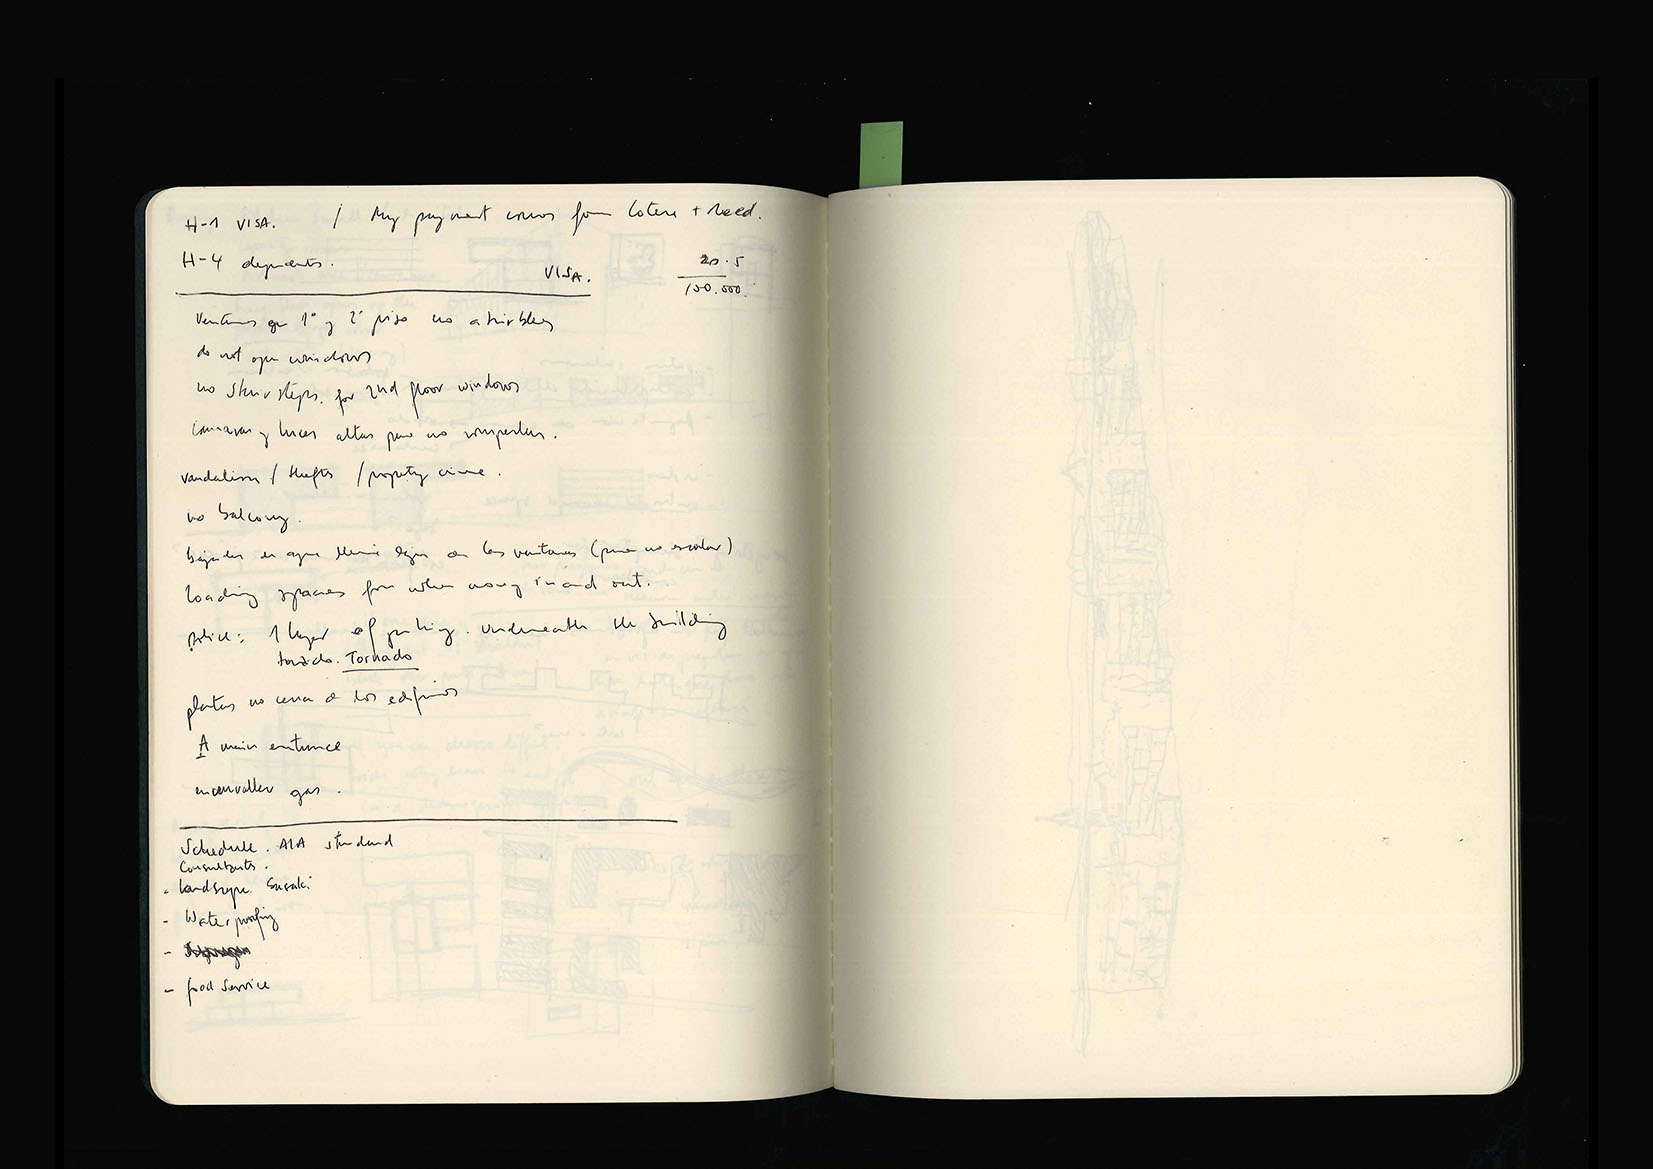 H-1 VISA. / My payment comes from + Reed.
H-4 dependents.
VISA.
20.5
150.000.
Ventanas en 1° y 2° piso no
do not open windows
no stair steps. for 2nd floor windows
camaras y luces altas para no romperlas.
vandalism / thefts / property crime.
no balcony.
bajadas de agua lluvia lejos de las ventanas (para no escalar)
loading spaces for when moving in and out.
police: 1 layer of parking. underneath the building
Tornado
plantas no cerca de los edificios
A main entrance
gas.
Schedule. AIA standard
Consultants.
- landscape Sasaki
- Waterproofing
-
- food service